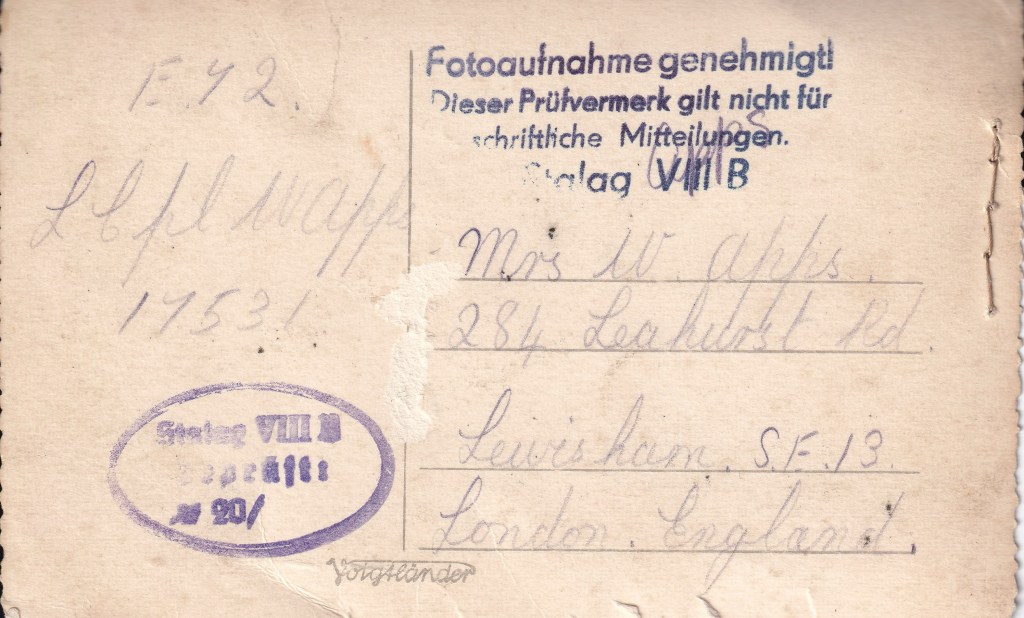 E.72.
L Cpl W Apps
17531
Fotoaufnahme genehmigt!
Dieser Prüfvermerk gilt nicht für
schriftliche Mitteilungen.
Stalag VIII B
Apps
Mrs W. Apps.
284 Leahurst Rd.
Lewisham. S.E.13.
London. England.
Stalag VIII B
Geprüft:
20/
Voigtländer